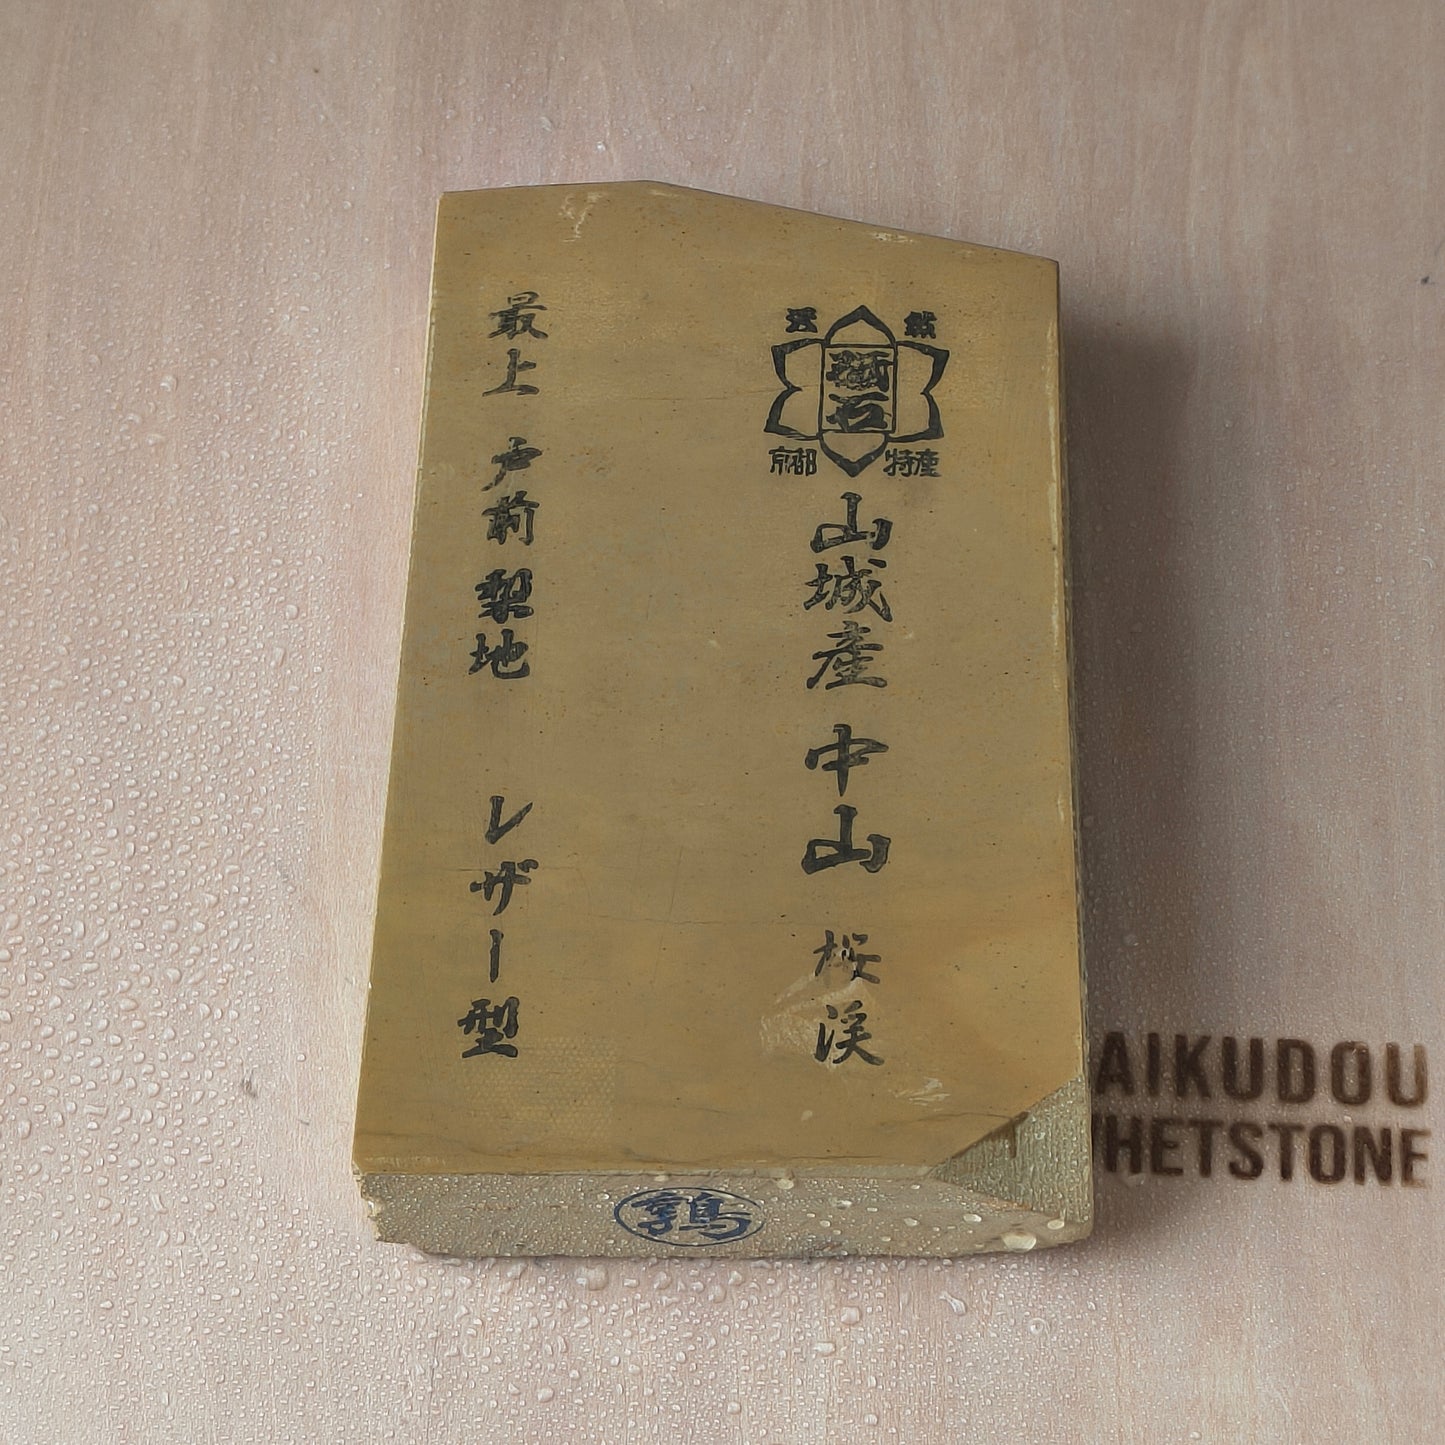 天然
砥石
京都 特産
山城産 中山 桜渓
最上 戸前 梨地 レザー型
鶉
AIKUDOU
HETSTONE